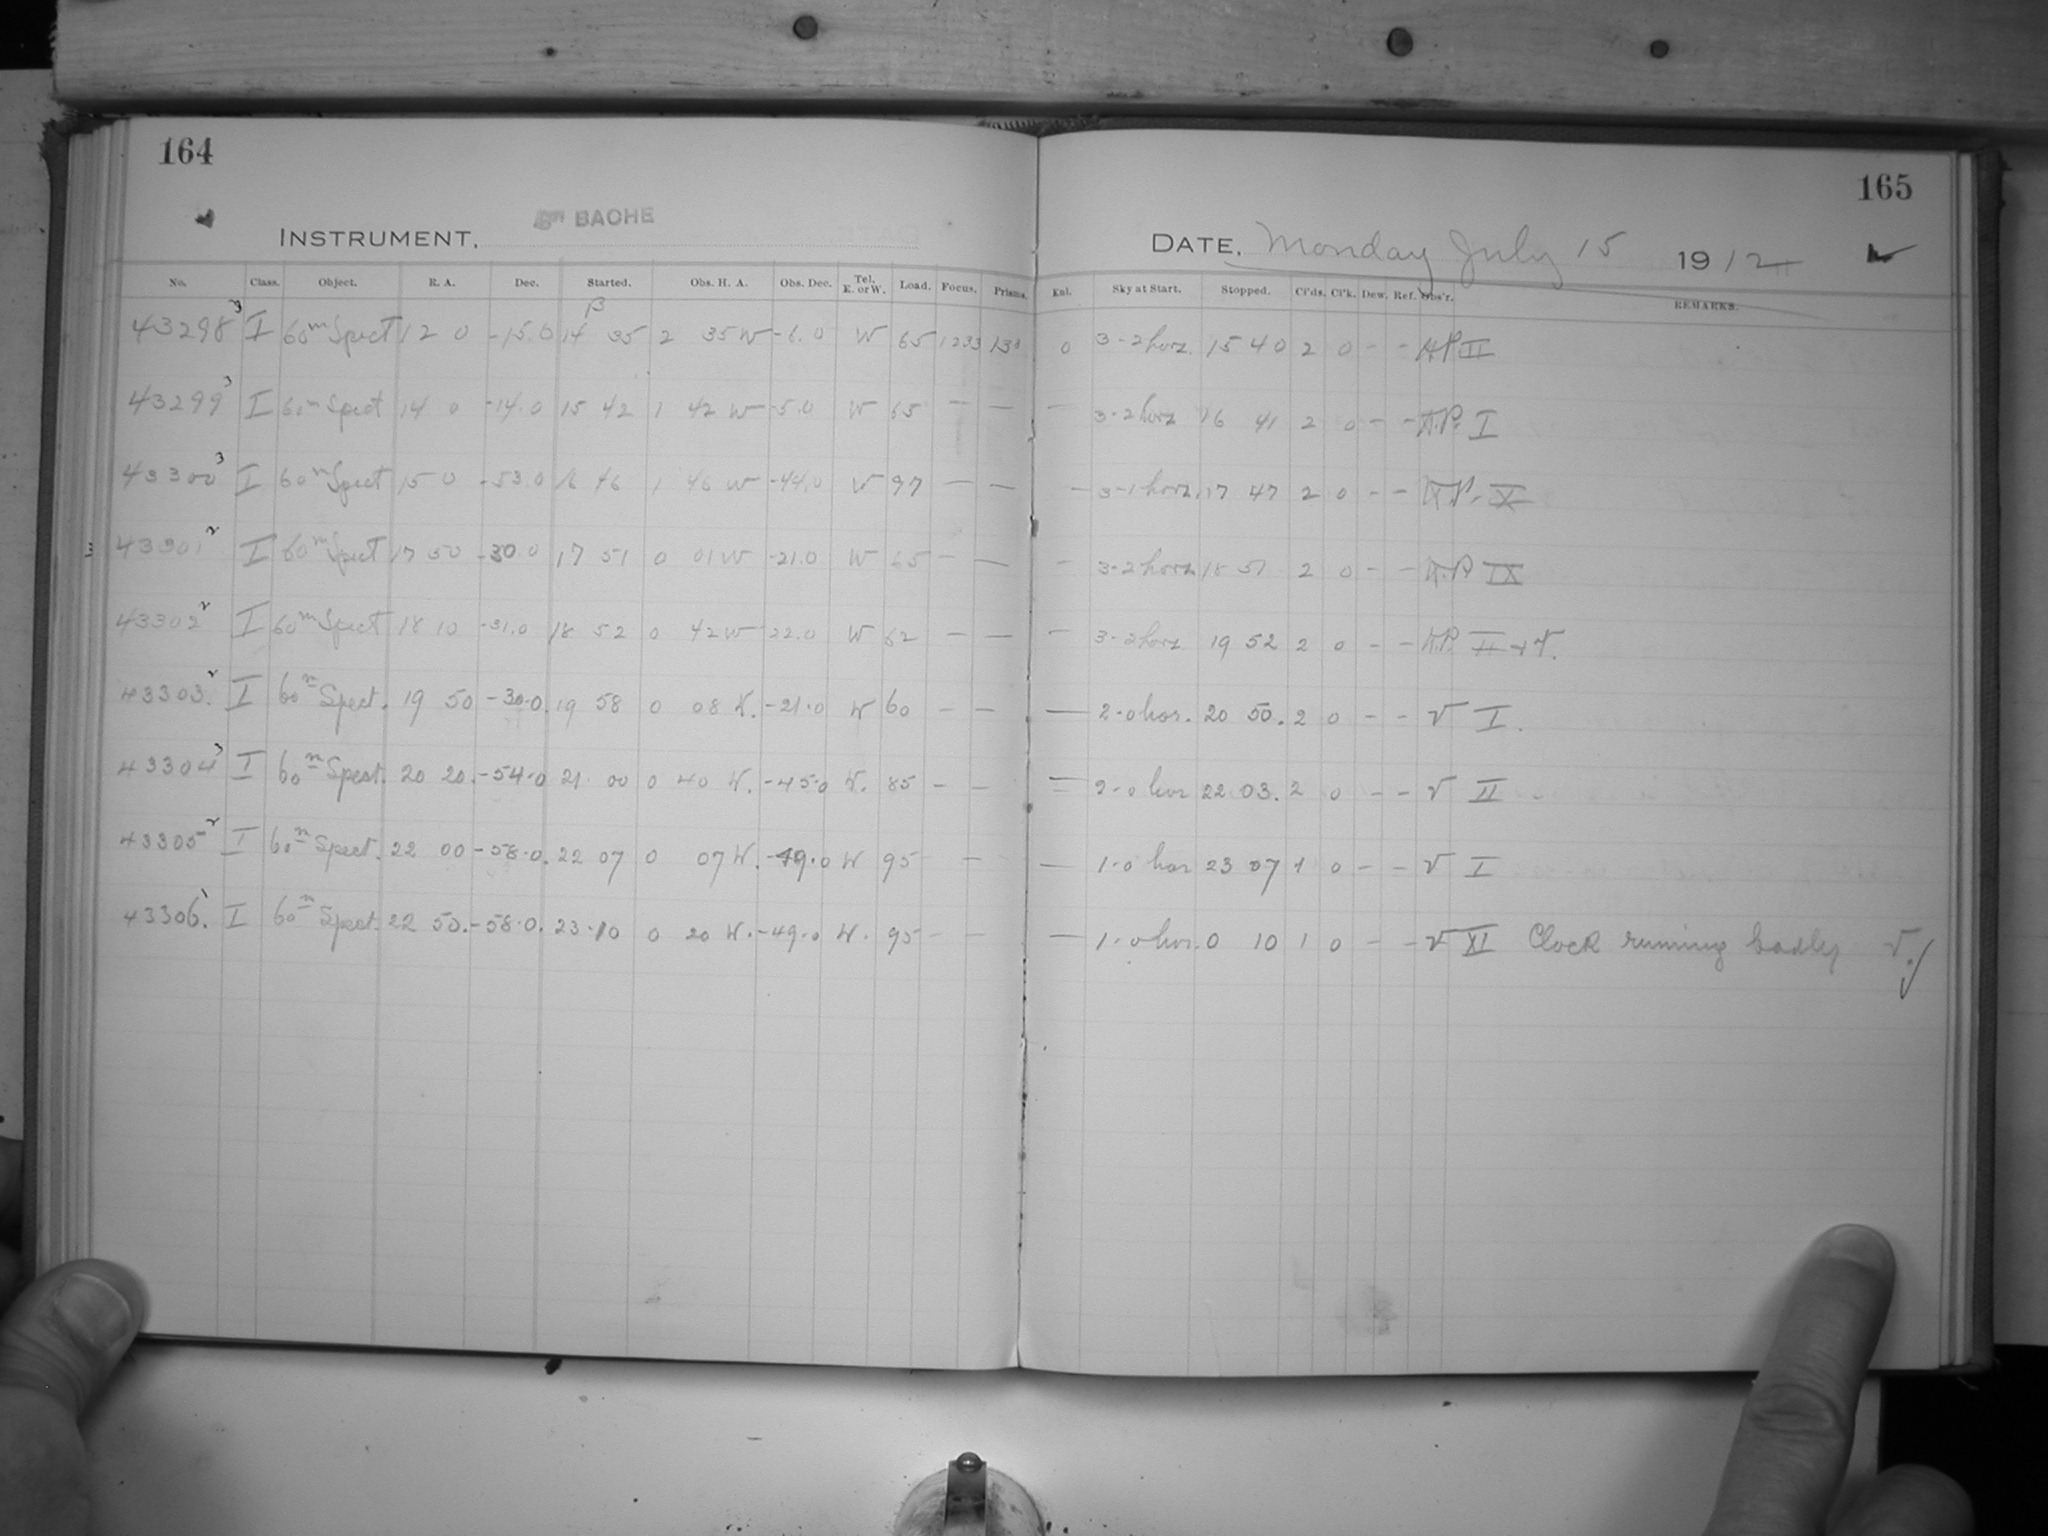 164
165
INSTRUMENT, BACHE
DATE, Monday July 15 1912
No. Class. Object. R. A. Dec. Started. Obs. H. A. Obs. Dec. Tel. E. or W. Load. Focus. Prisms. Knl. Sky at Start. Stopped. Cl'ds. Cl'k. Dew. Ref. Obs'r. REMARKS.
β
43298 3 I 60m Spect 12 0 -15.0 14 35 2 35 W -6.0 W 65 1233 13 0 3-2 horz. 15 40 2 0 - - A.P. II
43299 3 I 60m Spect 14 0 -14.0 15 42 1 42 W -5.0 W 65 — — — 3-2 horz 16 41 2 0 - - A.P. I
43300 3 I 60m Spect 15 0 -53.0 16 46 1 46 W -44.0 W 97 — — — 3-1 horz. 17 47 2 0 - - A.P. X
43301 2 I 60m Spect 17 50 -30.0 17 51 0 01 W -21.0 W 65 — — — 3-2 horz 18 51 2 0 - - A.P. IX
43302 2 I 60m Spect 18 10 -31.0 18 52 0 42 W 22.0 W 62 — — — 3-2 horz 19 52 2 0 - - A.P. II + V.
43303. 2 I 60m Spect. 19 50 -30.0. 19 58 0 08 W. -21.0 W 60 - - — 2-0 hor. 20 50. 2 0 - - V I.
43304 3 I 60m Spect. 20 20. -54.0 21 00 0 40 W. -45.0 W. 85 - - — 2-0 hor 22 03. 2 0 - - V II
43305 2 I 60m Spect. 22 00 -58.0. 22 07 0 07 W. -49.0 W 95 - — 1-0 hor 23 07 1 0 - - V I
43306. I 60m Spect. 22 50. -58.0. 23.10 0 20 W. -49.0 W. 95 - - — 1-0 hor. 0 10 1 0 - - V XI Clock running badly V.